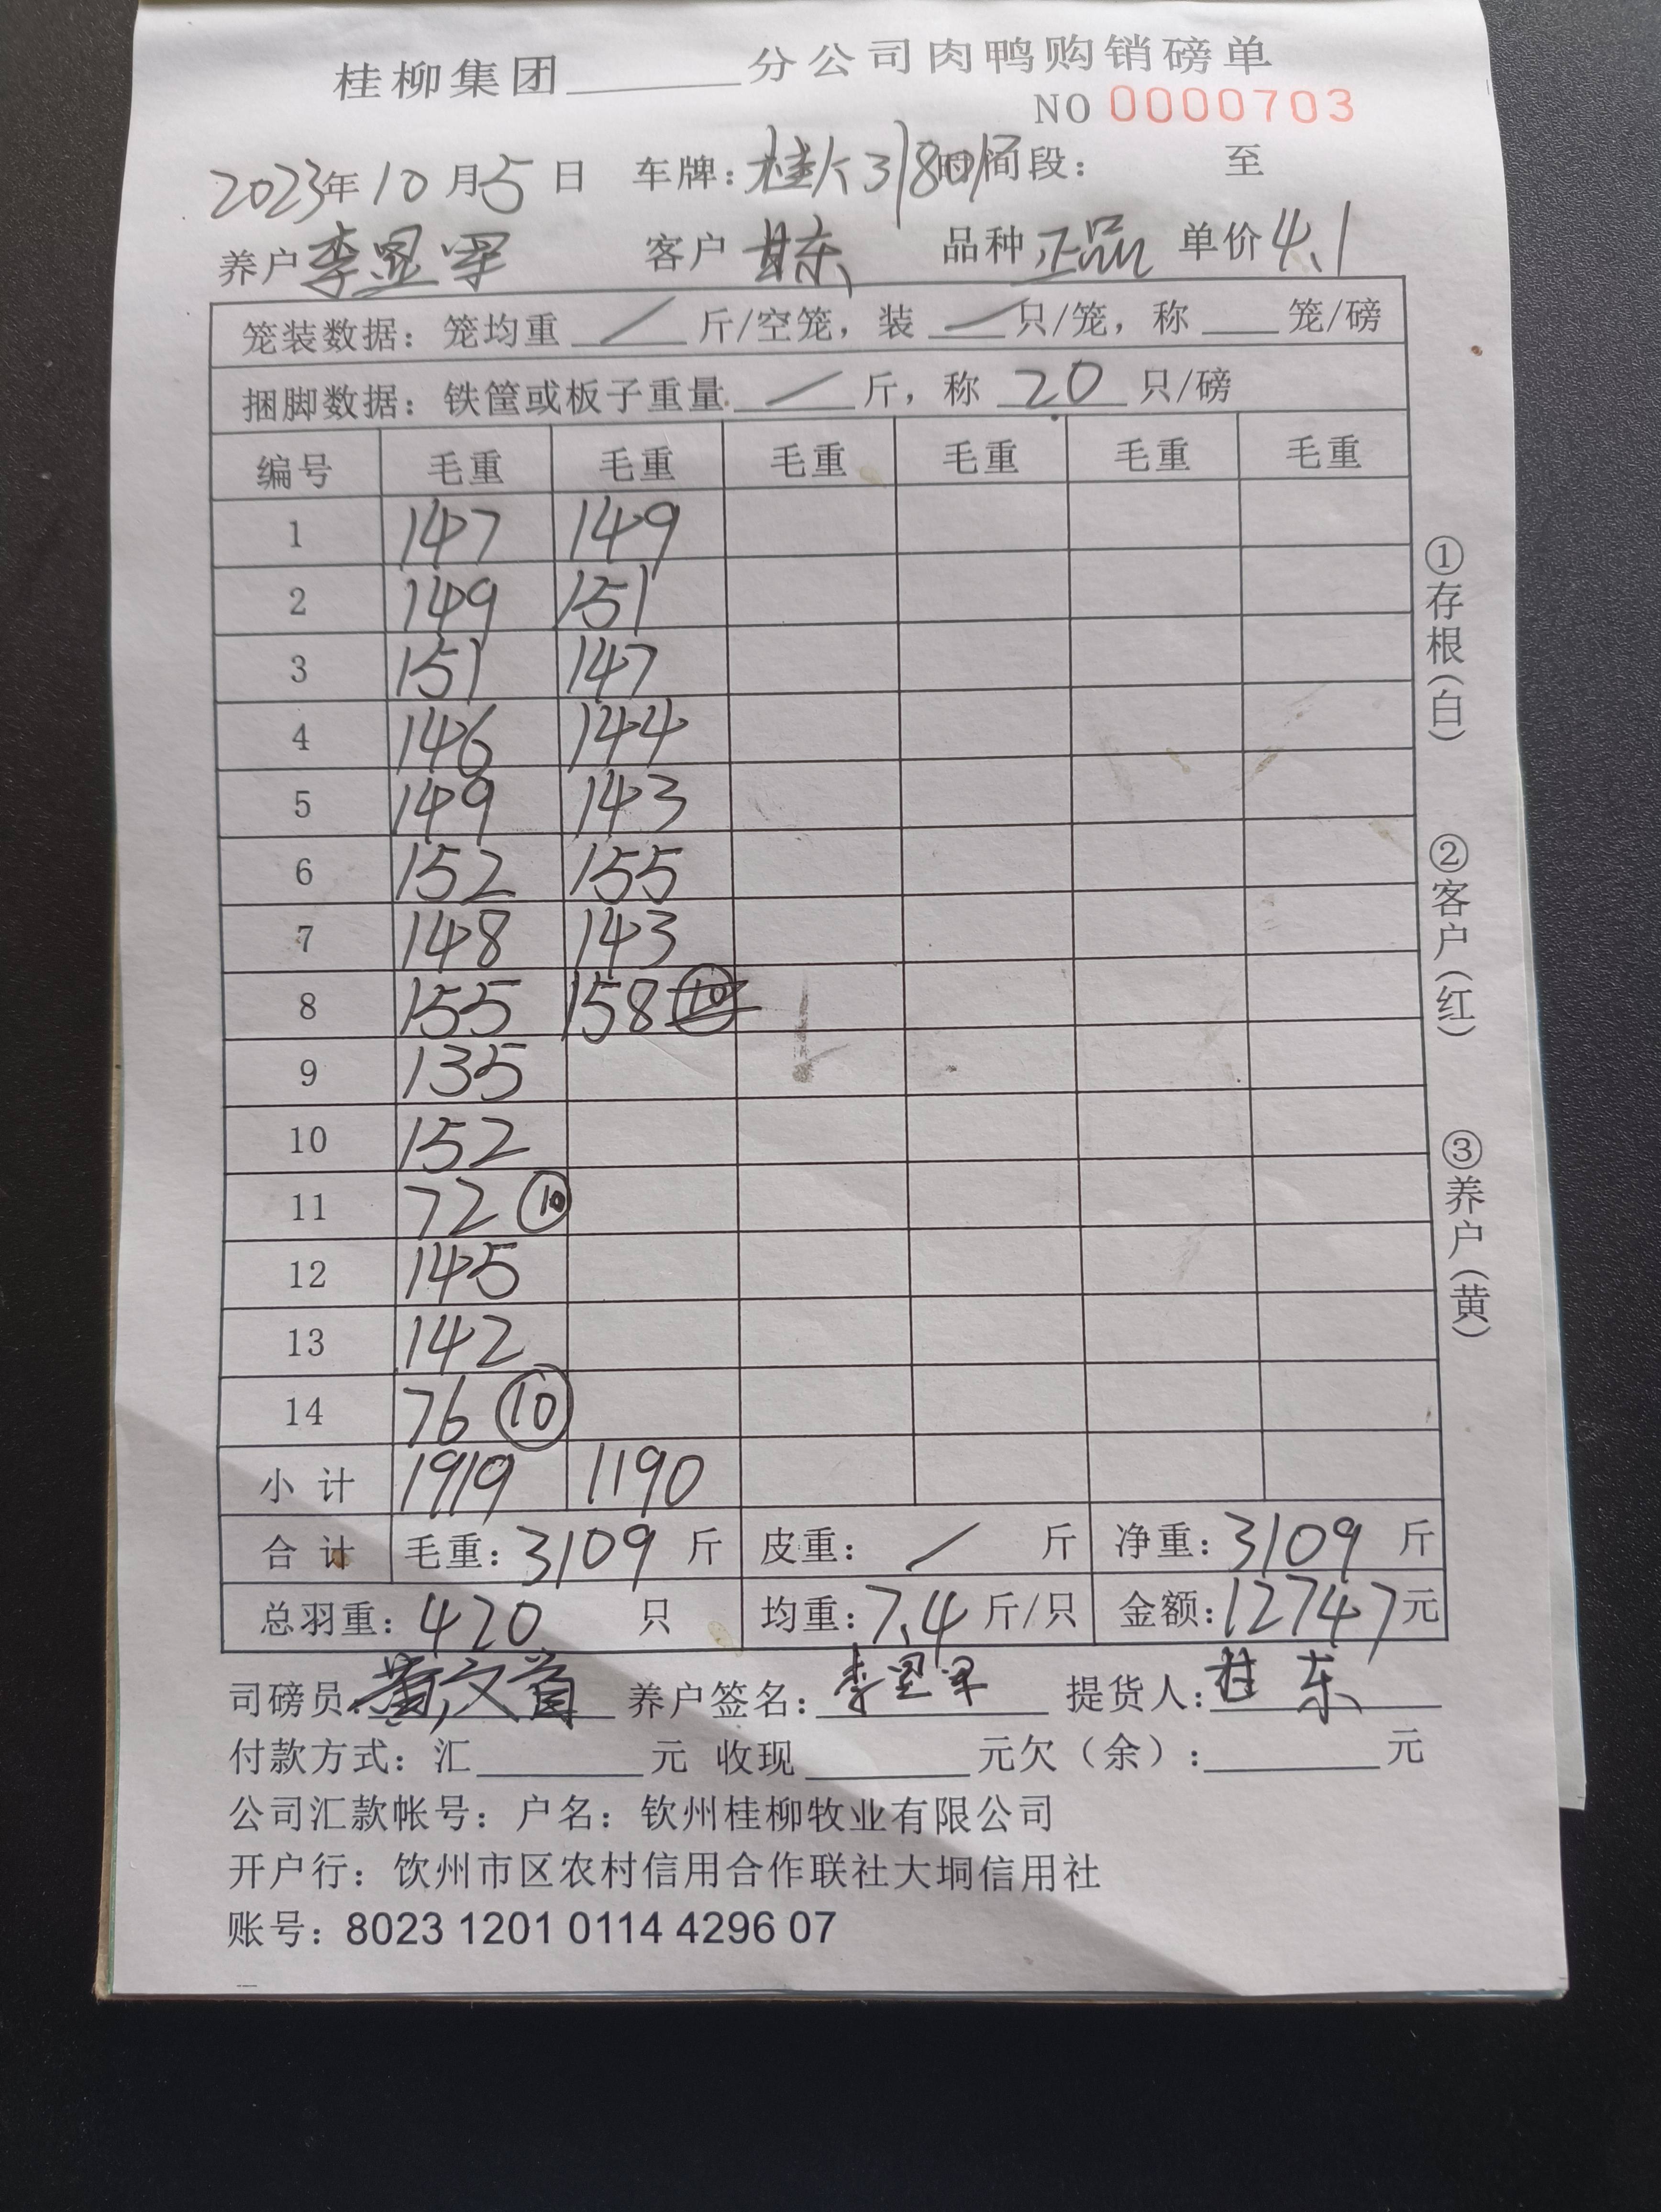 桂柳集团______分公司肉鸭购销磅单
NO 0000703
2023年10月5日 车牌: 时间段: 至
养户李 军 客户 东 品种正品 单价4.1
笼装数据: 笼均重 / 斤/空笼, 装 / 只/笼, 称 ___ 笼/磅
捆脚数据: 铁筐或板子重量 / 斤, 称 20 只/磅
编号 毛重 毛重 毛重 毛重 毛重 毛重
1 147 149
2 149 151
3 151 147
4 146 144
5 149 143
6 152 155
7 148 143
8 155 158
9 135
10 152
11 72 ⑩
12 145
13 142
14 76 ⑩
小计 1919 1190
合计 毛重: 3109 斤 皮重: / 斤 净重: 3109 斤
总羽重: 420 只 均重: 7.4 斤/只 金额: 12747元
司磅员: 黄文首 养户签名: 李 军 提货人: 东
付款方式: 汇______元 收现______元欠(余):______元
公司汇款帐号: 户名: 钦州桂柳牧业有限公司
开户行: 饮州市区农村信用合作联社大垌信用社
账号: 8023 1201 0114 4296 07
①存根(白)
②客户(红)
③养户(黄)